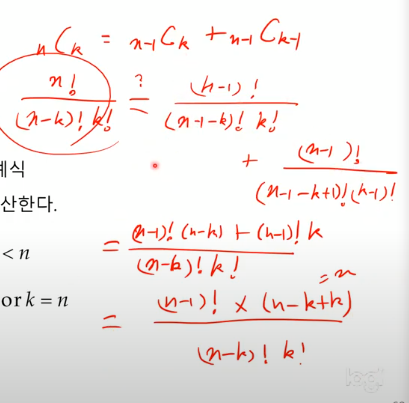 nCk = n-1Ck + n-1Ck-1
n! / (n-k)! k! ≟ (n-1)! / (n-1-k)! k!
+ (n-1)! / (n-1-k+1)! (k-1)!
계식
산한다.
= (n-1)! (n-k) + (n-1)! k / (n-k)! k!
< n
or k = n
= (n-1)! × (n-k+k) / (n-k)! k!
= n